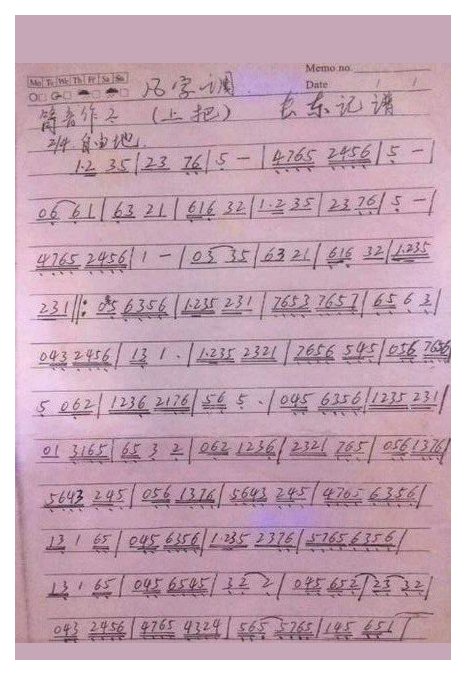 Memo no.
Mo Tu We Th Fr Sa Su
Date / /
凡字调
筒音作2 (上把) 长东记谱
2/4 自由地
1·2 35 | 23 76 | 5 - | 4765 2456 | 5 - |
06 61 | 63 21 | 616 32 | 1·2 35 | 23 76 | 5 - |
4765 2456 | 1 - | 03 35 | 63 21 | 616 32 | 1·235
231 ‖: 035 6356 | 1·235 231 | 7653 7657 | 65 6 3 |
043 2456 | 13 1 · | 1·235 2321 | 7656 545 | 056 7656
5 062 | 1236 2176 | 56 5 · | 045 6356 | 1235 231 |
01 3165 | 65 3 2 | 062 1236 | 2321 765 | 056 1376 |
5643 245 | 056 1376 | 5643 245 | 4765 6356 |
13 1 65 | 045 6356 | 1·235 2376 | 5765 6356 |
13 1 65 | 045 6545 | 32 2 | 045 652 | 23 32 |
043 2456 | 4765 4324 | 565 5765 | 145 651 |